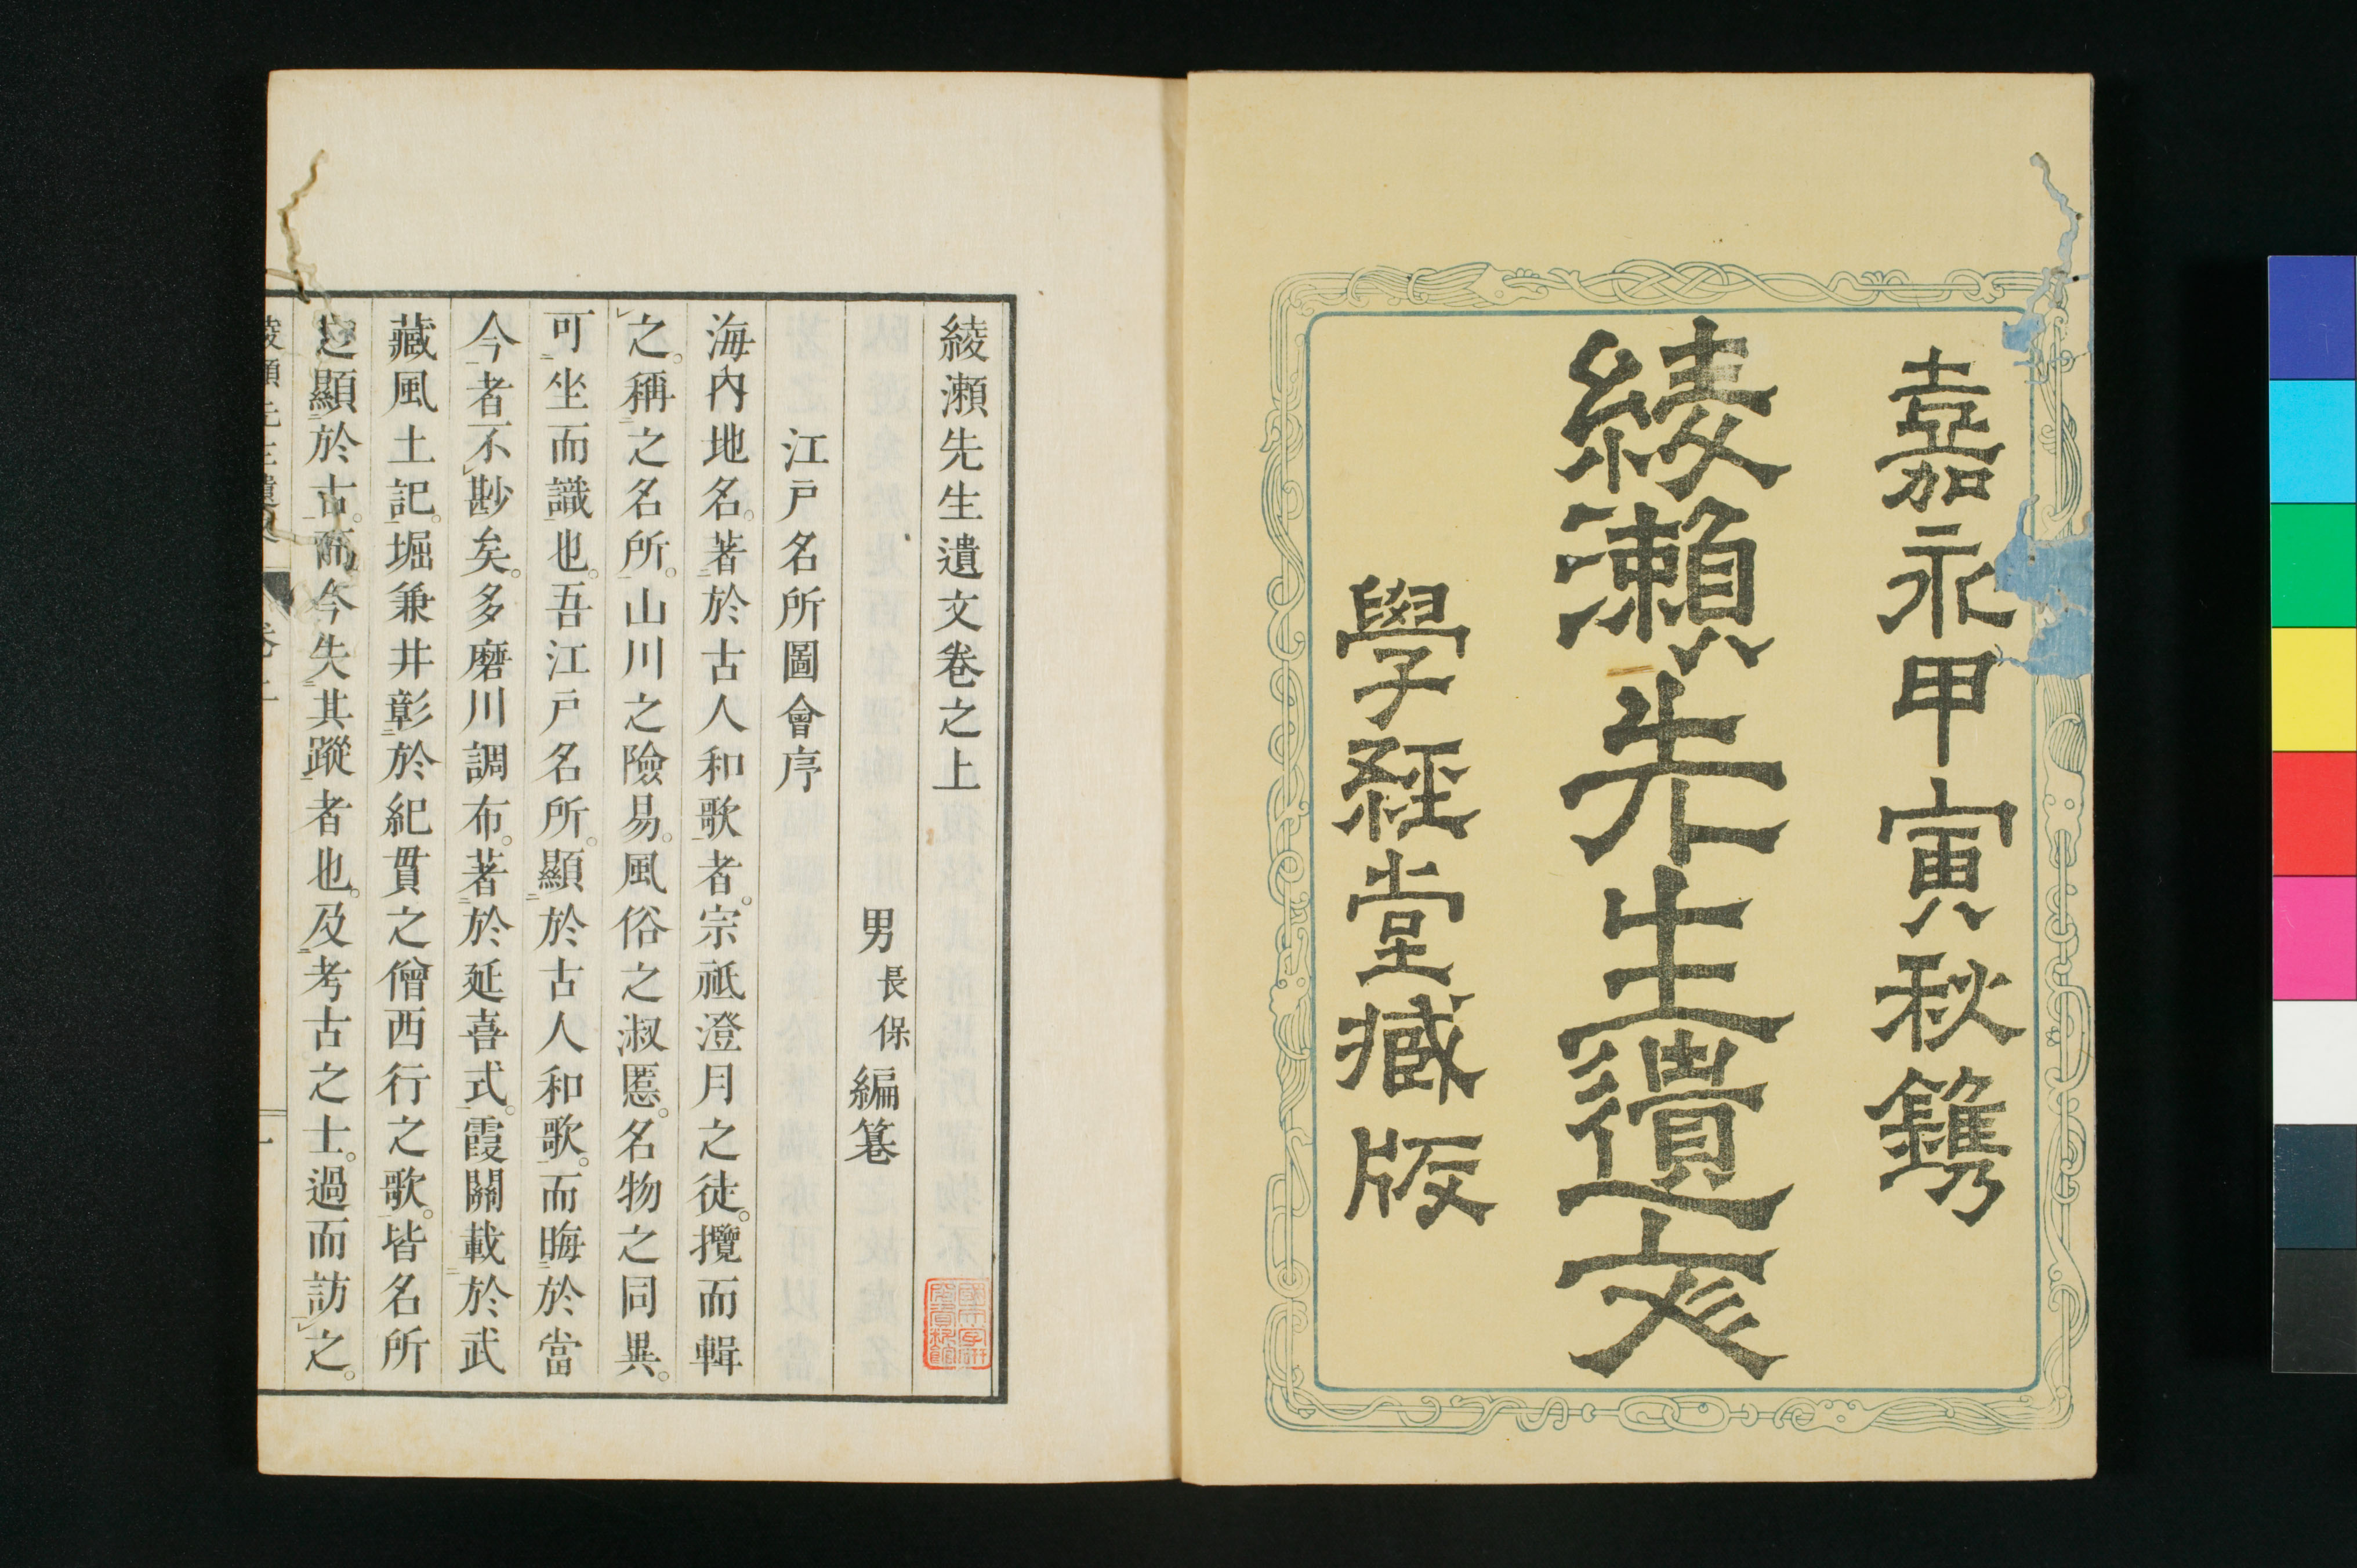 嘉永甲寅秋鐫
綾瀬先生遺文
學經堂藏版
綾瀬先生遺文卷之上
男長保編纂
江戸名所圖會序
海内地名。著於古人和歌者。宗祇澄月之徒。攬而輯
之。稱之名所。山川之險易。風俗之淑慝。名物之同異。
可坐而識也。吾江戸名所。顯於古人和歌。而晦於當
今者不尠矣。多磨川調布。著於延喜式。霞關載於武
藏風土記。堀兼井彰於紀貫之僧西行之歌。皆名所
之顯於古。而今失其蹤者也。及考古之士。過而訪之。